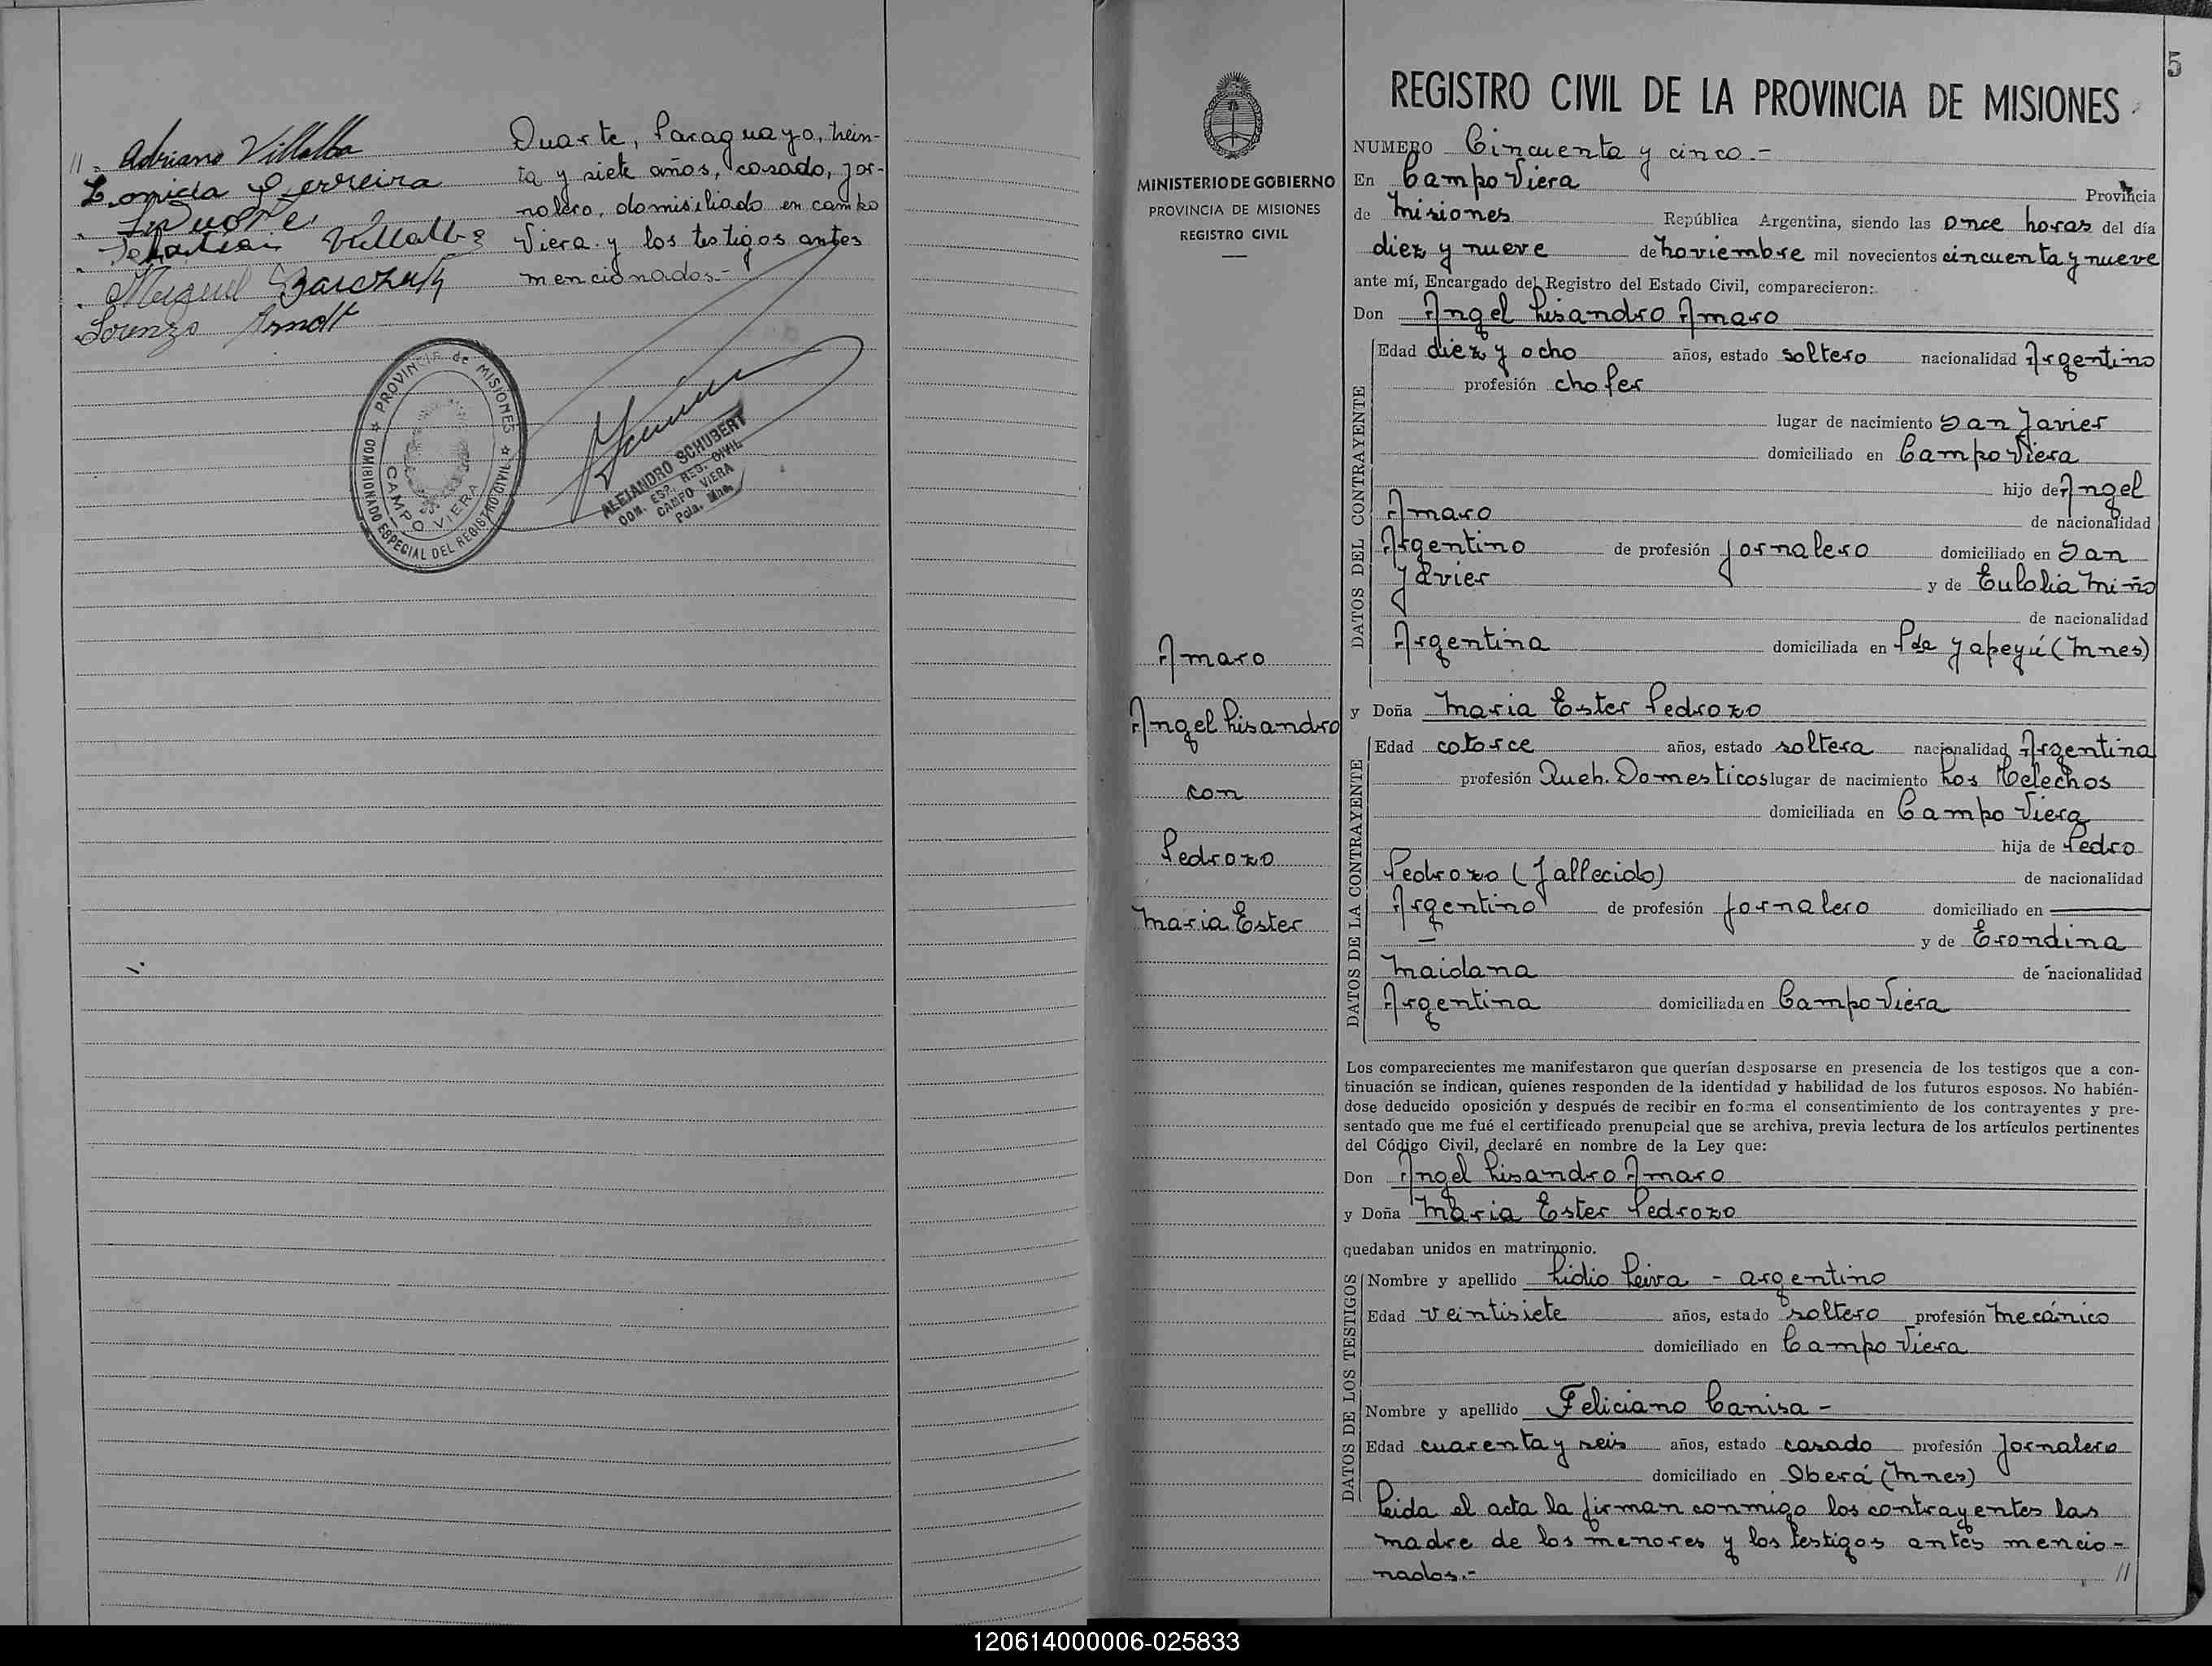 11 = Adriano Villalba
Leonida Ferreira
Duarte
Sebastian Villalba
Miguel
Lorenzo Arndt
Duarte, Paraguayo, trein-
ta y siete años, casado, jor-
nalero, domisiliado en campo
Viera y los testigos antes
mencionados.-
PROVINCIA de MISIONES
COMISIONADO ESPECIAL DEL REGISTRO CIVIL
CAMPO VIERA
ALEJANDRO SCHUBERT
COM. ESP. REG. CIVIL
CAMPO VIERA
Pcia. Mnes.
5
MINISTERIO DE GOBIERNO
PROVINCIA DE MISIONES
REGISTRO CIVIL
Amaro
Angel Lisandro
con
Pedrozo
Maria Ester
REGISTRO CIVIL DE LA PROVINCIA DE MISIONES
NUMERO Cincuenta y cinco.-
En Campo Viera Provincia
de Misiones República Argentina, siendo las once horas del día
diez y nueve de noviembre mil novecientos cincuenta y nueve
ante mí, Encargado del Registro del Estado Civil, comparecieron:
Don Angel Lisandro Amaro
DATOS DEL CONTRAYENTE
Edad diez y ocho años, estado soltero nacionalidad Argentino
profesión chofer
lugar de nacimiento San Javier
domiciliado en Campo Viera
hijo de Angel
Amaro de nacionalidad
Argentino de profesión jornalero domiciliado en San
Javier y de Eulolia Miño
de nacionalidad
Argentina domiciliada en Pda Yapeyú (Mnes)
y Doña Maria Ester Pedrozo
DATOS DE LA CONTRAYENTE
Edad catorce años, estado soltera nacionalidad Argentina
profesión Queh. Domesticos lugar de nacimiento Los Helechos
domiciliada en Campo Viera
hija de Pedro
Pedrozo (Fallecido) de nacionalidad
Argentino de profesión jornalero domiciliado en ———
— y de Erondina
Maidana de nacionalidad
Argentina domiciliada en Campo Viera
Los comparecientes me manifestaron que querían desposarse en presencia de los testigos que a con-
tinuación se indican, quienes responden de la identidad y habilidad de los futuros esposos. No habién-
dose deducido oposición y después de recibir en forma el consentimiento de los contrayentes y pre-
sentado que me fué el certificado prenupcial que se archiva, previa lectura de los artículos pertinentes
del Código Civil, declaré en nombre de la Ley que:
Don Angel Lisandro Amaro
y Doña Maria Ester Pedrozo
quedaban unidos en matrimonio.
DATOS DE LOS TESTIGOS
Nombre y apellido Lidio Leiva - argentino
Edad veintisiete años, estado soltero profesión mecánico
domiciliado en Campo Viera
Nombre y apellido Feliciano Canisa -
Edad cuarenta y seis años, estado casado profesión Jornalero
domiciliado en Oberá (Mnes)
Leida el acta la firman conmigo los contrayentes las
madre de los menores y los testigos antes mencio-
nados.- //
120614000006-025833